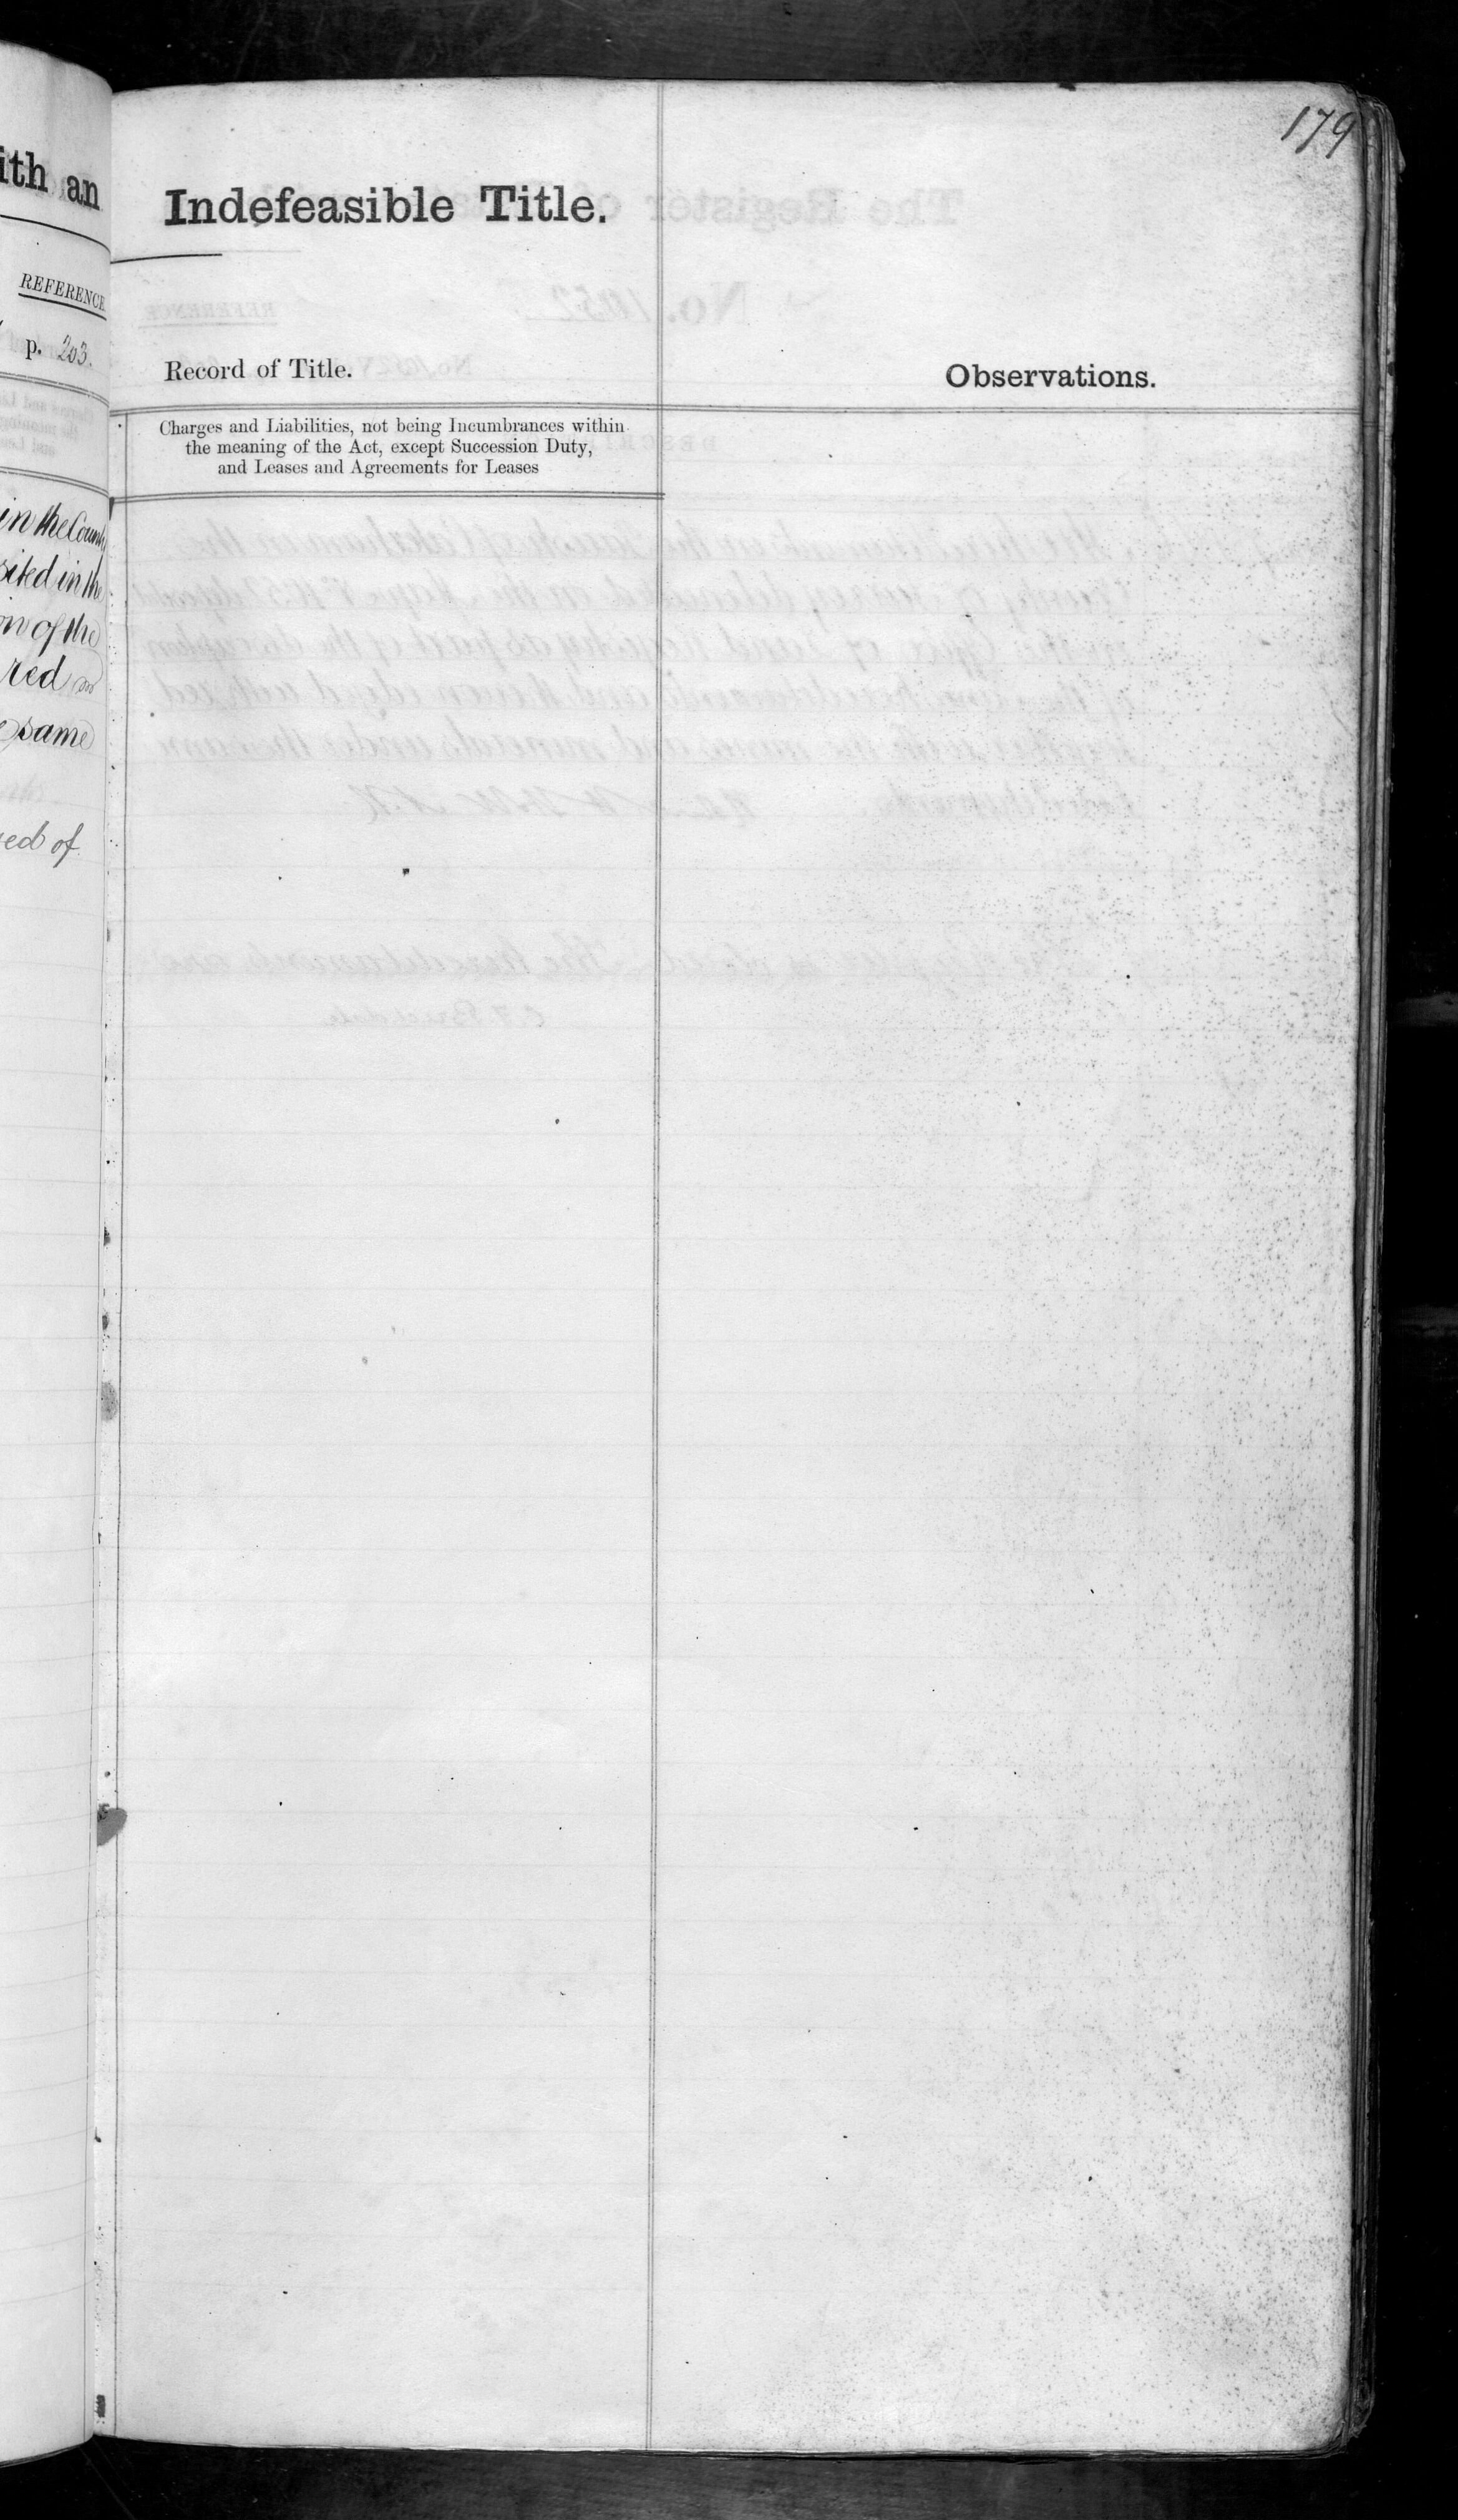 ith an
REFERENCE
p. 203.
in the County
sited in the
on of the
red
same
ed of
179
Indefeasible Title.
Record of Title.
Observations.
Charges and Liabilities, not being Incumbrances within
the meaning of the Act, except Succession Duty,
and Leases and Agreements for Leases